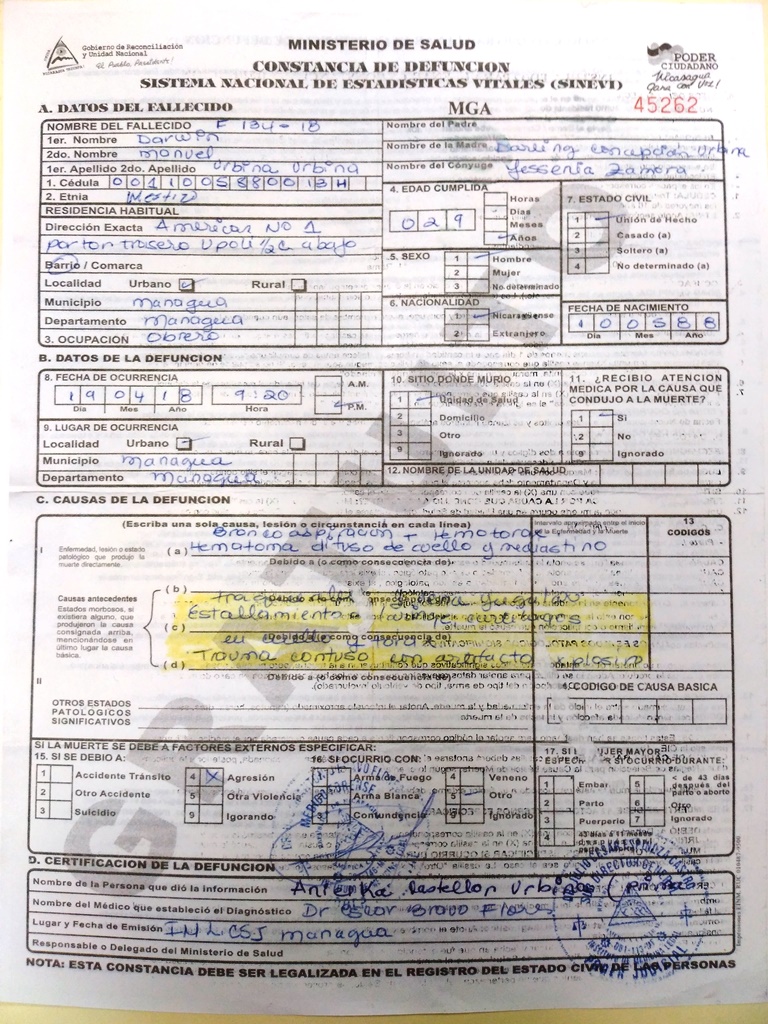 Gobierno de Reconciliación
y Unidad Nacional
El Pueblo, Presidente!
MINISTERIO DE SALUD
CONSTANCIA DE DEFUNCION
SISTEMA NACIONAL DE ESTADISTICAS VITALES (SINEVI)
PODER
CIUDADANO
Nicaragua
Gana con Vos!
A. DATOS DEL FALLECIDO
MGA
45262
NOMBRE DEL FALLECIDO F 134-18
1er. Nombre Darwin
2do. Nombre Manuel
1er. Apellido 2do. Apellido Urbina Urbina
1. Cédula 0011005880013H
2. Etnia Mestizo
RESIDENCIA HABITUAL
Dirección Exacta Americas No 1
porton trasero Upoli 1/2 c abajo
Barrio / Comarca
Localidad Urbano Rural
Municipio Managua
Departamento Managua
3. OCUPACIÓN Obrero
Nombre del Padre
Nombre de la Madre Darling Concepción Urbina
Nombre del Cónyuge Yessenia Zamora
4. EDAD CUMPLIDA
029
Horas
Días
Meses
Años
5. SEXO
1 Hombre
2 Mujer
3 No determinado
6. NACIONALIDAD
1 Nicaragüense
2 Extranjero
7. ESTADO CIVIL
1 Unión de Hecho
2 Casado (a)
3 Soltero (a)
4 No determinado (a)
FECHA DE NACIMIENTO
100588
Día Mes Año
B. DATOS DE LA DEFUNCION
8. FECHA DE OCURRENCIA
190418 9:20
Día Mes Año Hora
A.M.
P.M.
9. LUGAR DE OCURRENCIA
Localidad Urbano Rural
Municipio Managua
Departamento Managua
10. SITIO DONDE MURIO
1 Unidad de Salud
2 Domicilio
3 Otro
9 Ignorado
11. ¿RECIBIO ATENCION
MEDICA POR LA CAUSA QUE
CONDUJO A LA MUERTE?
1 Si
2 No
9 Ignorado
12. NOMBRE DE LA UNIDAD DE SALUD
C. CAUSAS DE LA DEFUNCION
(Escriba una sola causa, lesión o circunstancia en cada línea)
Intervalo aproximado entre el inicio
de la Enfermedad y la Muerte
13
CODIGOS
Bronco aspiracion + Hemotorax
I
Enfermedad, lesión o estado
patológico que produjo la
muerte directamente.
(a) Hematoma difuso de cuello y mediastino
Debido a (o como consecuencia de)
Causas antecedentes
Estados morbosos, si
existiera alguno, que
produjeron la causa
consignada arriba,
mencionándose en
último lugar la causa
básica.
(b)
Debido a (o como consecuencia de)
Estallamiento
(c)
en cuello y torax
Debido a (o como consecuencia de)
(d) Trauma contuso con artefacto explosivo
Debido a (o como consecuencia de)
II
OTROS ESTADOS
PATOLÓGICOS
SIGNIFICATIVOS
CODIGO DE CAUSA BASICA
SI LA MUERTE SE DEBE A FACTORES EXTERNOS ESPECIFICAR:
15. SI SE DEBIO A:
1 Accidente Tránsito
2 Otro Accidente
3 Suicidio
4 X Agresión
5 Otra Violencia
9 Ignorando
16. SI OCURRIO CON:
1 Arma de Fuego
2 Arma Blanca
3 Contundencia
4 Veneno
5 Otro
9 Ignorado
17. SI MUJER MAYOR
SI OCURRIO DURANTE:
1 Embar
2 Parto
3 Puerperio
4
5 < de 43 días
después del
parto o aborto
6 Otro
9 Ignorado
GRATUITO
D. CERTIFICACION DE LA DEFUNCION
Nombre de la Persona que dió la información Castellon Urbina
Nombre del Médico que estableció el Diagnóstico Dr Oscar Bravo Flores
Lugar y Fecha de Emisión IML CSJ Managua
Responsable o Delegado del Ministerio de Salud
NOTA: ESTA CONSTANCIA DEBE SER LEGALIZADA EN EL REGISTRO DEL ESTADO CIVIL DE LAS PERSONAS